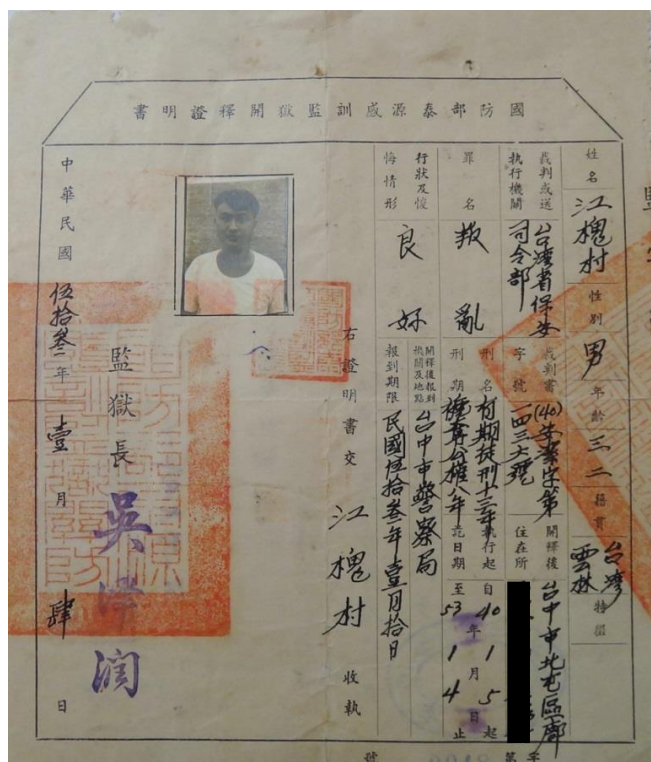 國防部泰源感訓監獄開釋證明書
姓名 江槐村 性別 男 年齡 三二 籍貫 台灣雲林 特徵
裁判或送執行機關 台灣省保安司令部 裁判書字號 (40)安潔字第一四三六號 開釋後住在所 台中市北屯區廍
罪名 叛亂 刑名刑期 有期徒刑十三年褫奪公權八年 執行起訖日期 自40年1月5日起至53年1月4日止
行狀及悛悔情形 良好 開釋後報到機關及地點 台中市警察局
報到期限 民國伍拾叁年壹月拾日
右證明書交 江槐村 收執
監獄長 吳
潤
中華民國伍拾叁年壹月肆日
字第
號